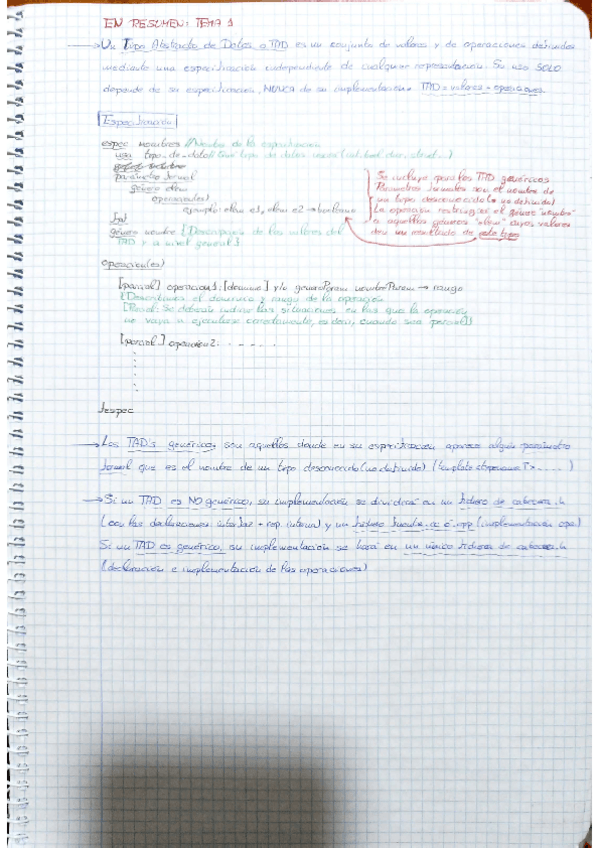 EN RESUMEN: TEMA 1
→ Un Tipo Abstracto de Datos o TAD es un conjunto de valores y de operaciones definidos
mediante una especificación independiente de cualquier representación. Su uso SOLO
depende de su especificación, NUNCA de su implementación. TAD = valores + operaciones.
Especificación
espec nombres {Nombre de la especificación
usa tipo_de_dato
parámetro formal
género elem
operación
ejemplo: elem e1, elem e2 → booleano
fpf
género nombre {Descripción de los valores del
TAD y a nivel general}
Se incluye para los TAD genéricos
Parámetros formales son el nombre de
un tipo desconocido (no definido)
La operación restringe el género "nombre"
a aquellos géneros "elem" cuyos valores
den un resultado de este tipo
operaciones
[parcial] operacion1: [dominio] y/o generoParam nombreParam → rango
{Describimos el dominio y rango de la operación
[Parcial: Se deberán indicar las situaciones en las que la operación
no vaya a ejecutarse correctamente, es decir, cuando sea parcial]}
[parcial] operacion2: . . . . .
fespec
→ Los TAD's genéricos, son aquellos donde en su especificación aparece algún parámetro
formal que es el nombre de un tipo desconocido (no definido) (template <typename T> . . . .)
→ Si un TAD es NO genérico, su implementación se dividirá en un fichero de cabecera.h
(con las declaraciones interfaz + rep. interna) y un fichero fuente.cc ó .cpp (implementación ops)
Si un TAD es genérico, su implementación se hará en un único fichero de cabecera.h
(declaración e implementación de las operaciones)